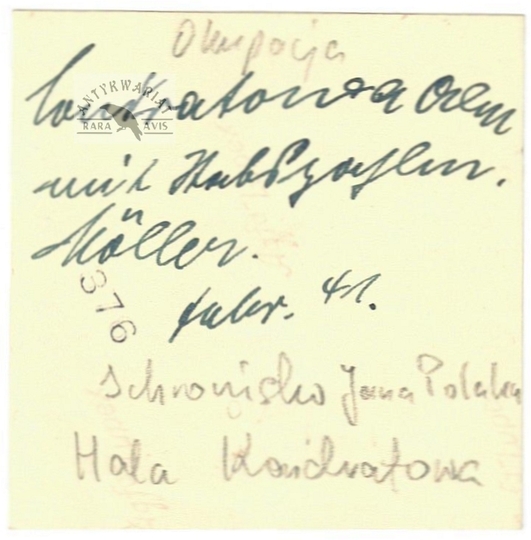 Okupacja
Kondratowa Alm
mit
Möller.
febr. 41.
376
Schronisko Jana Polaka
Hala Kondratowa
ANTYKWARIAT
RARA AVIS